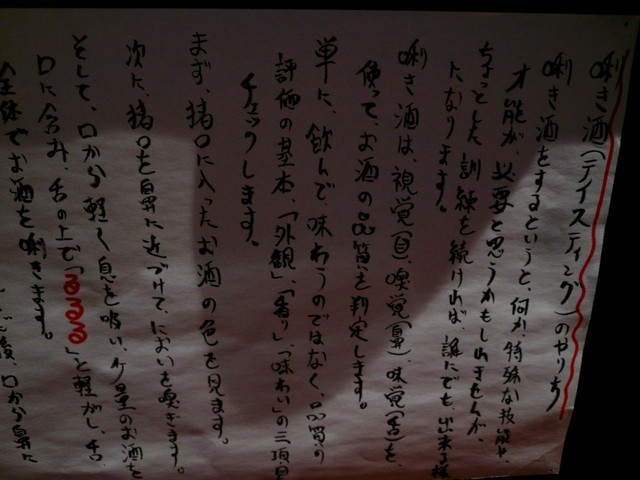 唎き酒(テイスティング)のやり方
唎き酒をするというと、何か、特殊な技能や、
才能が、必要と思うかもしれませんが、
ちょっとした訓練を続ければ、誰にでも、出来る様
になります。
唎き酒は、視覚(目)、嗅覚(鼻)、味覚(舌)を、
使って、お酒の品質を判定します。
単に、飲んで、味わうのではなく、品質の
評価の基本、「外観」、「香り」、「味わい」の三項目
チェックします。
まず、猪口に入ったお酒の色を見ます。
次に、猪口を鼻に近づけて、においを嗅ぎます。
そして、口から軽く息を吸い、少量のお酒を
口に含み、舌の上で「るるる」と軽がし、舌
全体でお酒を唎きます。
後、口から鼻に